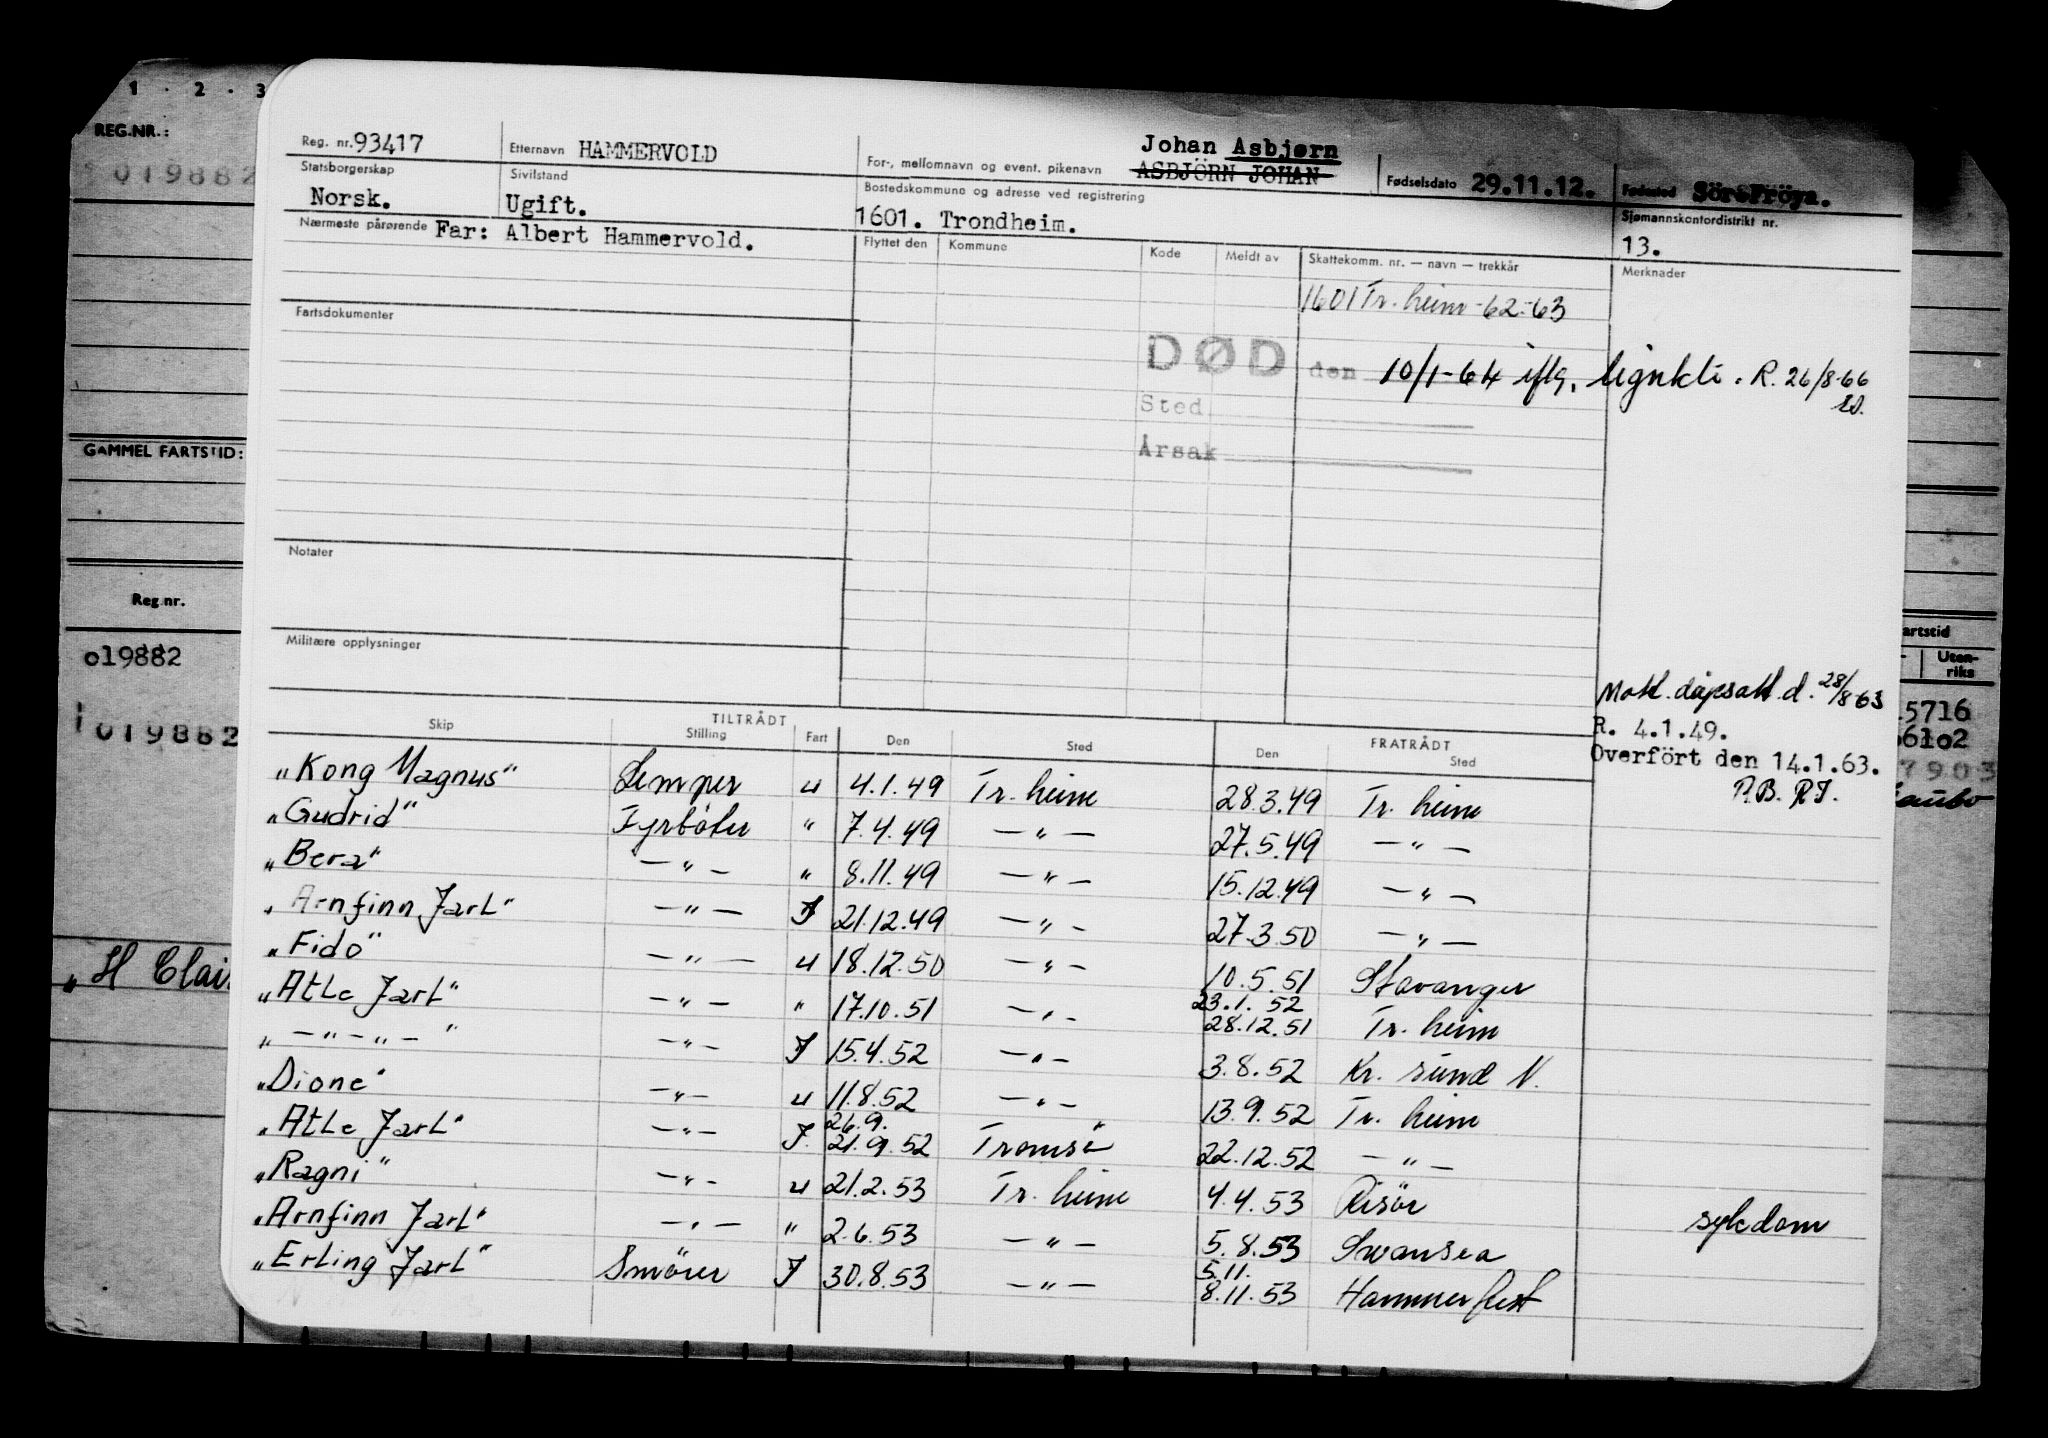 1 · 2 · 3
REG.NR.:
019882
GAMMEL FARTSTID:
Reg.nr.
o19882
019882
„H Clai
Reg. nr. 93417 Etternavn HAMMERVOLD For-, mellomnavn og event. pikenavn Johan Asbjørn
ASBJÖRN JOHAN Fødselsdato 29.11.12. Fødested Sör-Fröya.
Statsborgerskap Norsk. Sivilstand Ugift. Bostedskommune og adresse ved registrering 1601. Trondheim. Sjømannskontordistrikt nr. 13.
Nærmeste pårørende Far: Albert Hammervold. Flyttet den Kommune Kode Meldt av Skattekomm. nr. — navn — trekkår Merknader
1601 Tr. heim -62-63
Fartsdokumenter
DØD den 10/1-64 iflg. lignkti. R. 26/8-66
Sted
Årsak
Notater
Militære opplysninger
Mott. dåpsatt. d. 28/8-63
R. 4.1.49.
Overfört den 14.1.63.
P.B. RJ.
TILTRÅDT FRATRÅDT
Skip Stilling Fart Den Sted Den Sted
„Kong Magnus" Lemper u 4.1.49 Tr. heim 28.3.49 Tr. heim
„Gudrid" Fyrböter " 7.4.49 — " — 27.5.49 — " —
„Bera" — " — " 8.11.49 — " — 15.12.49 — " —
„Arnfinn Jarl" — " — J 21.12.49 — " — 27.3.50 — " —
„Fido" — " — u 18.12.50 — " — 10.5.51 Stavanger
„Atle Jarl" — " — " 17.10.51 — " — 23.1.52
28.12.51 Tr. heim
„ — " — " — " — " — J 15.4.52 — " — 3.8.52 Kr. sund N.
„Dione" — " — u 11.8.52 — " — 13.9.52 Tr. heim
„Atle Jarl" — " — J. 26.9.
21.9.52 Tromsö 22.12.52 — " —
„Ragni" — " — u 21.2.53 Tr. heim 4.4.53 Risör
„Arnfinn Jarl" — " — " 2.6.53 — " — 5.8.53 Swansea sykdom
„Erling Jarl" Smörer J 30.8.53 — " — 5.11.
8.11.53 Hammerfest
artstid
Uten-
riks
5716
61o2
7903